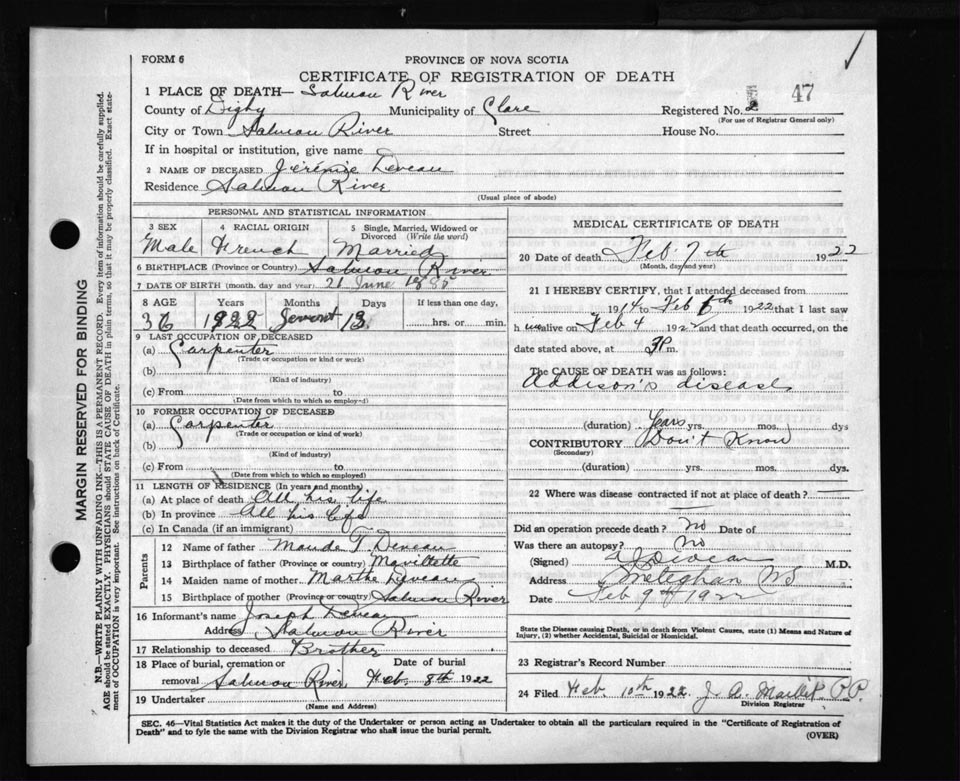 FORM 6
PROVINCE OF NOVA SCOTIA
CERTIFICATE OF REGISTRATION OF DEATH
47
1 PLACE OF DEATH— Salmon River
County of Digby Municipality of Clare Registered No. 2
(For use of Registrar General only)
City or Town Salmon River Street House No.
If in hospital or institution, give name
2 NAME OF DECEASED Jérémie Deveau
Residence Salmon River
(Usual place of abode)
MARGIN RESERVED FOR BINDING
N.B.—WRITE PLAINLY WITH UNFADING INK—THIS IS A PERMANENT RECORD. Every item of information should be carefully supplied.
AGE should be stated EXACTLY. PHYSICIANS should STATE CAUSE OF DEATH in plain terms, so that it may be properly classified. Exact state-
ment of OCCUPATION is very important. See instructions on back of Certificate.
PERSONAL AND STATISTICAL INFORMATION
3 SEX 4 RACIAL ORIGIN 5 Single, Married, Widowed or
Divorced (Write the word)
Male French Married
6 BIRTHPLACE (Province or Country) Salmon River
7 DATE OF BIRTH (month, day and year) 21 June 1885
8 AGE Years Months Days If less than one day,
36 13 hrs. or min.
9 LAST OCCUPATION OF DECEASED
(a) Carpenter
(Trade or occupation or kind of work)
(b)
(Kind of industry)
(c) From to
(Date from which to which so employed)
10 FORMER OCCUPATION OF DECEASED
(a) Carpenter
(Trade or occupation or kind of work)
(b)
(Kind of industry)
(c) From to
(Date from which to which so employed)
11 LENGTH OF RESIDENCE (In years and months)
(a) At place of death All his life
(b) In province All his life
(c) In Canada (if an immigrant)
Parents
12 Name of father Mande T. Deveau
13 Birthplace of father (Province or Country) Mavillette
14 Maiden name of mother Marthe Deveau
15 Birthplace of mother (Province or country) Salmon River
16 Informant's name Joseph Deveau
Address Salmon River
17 Relationship to deceased Brother
18 Place of burial, cremation or Date of burial
removal Salmon River Feb. 8th 1922
19 Undertaker
(Name and Address)
MEDICAL CERTIFICATE OF DEATH
20 Date of death Feb 7th 1922
(Month, day and year)
21 I HEREBY CERTIFY, that I attended deceased from
1914 to Feb 6th 1922 that I last saw
h im alive on Feb 4 1922 and that death occurred, on the
date stated above, at 3 P m.
The CAUSE OF DEATH was as follows:
Addison's disease
(duration) Years yrs. mos. dys
CONTRIBUTORY Don't Know
(Secondary)
(duration) yrs. mos. dys.
22 Where was disease contracted if not at place of death?
Did an operation precede death? No Date of
Was there an autopsy? No
(Signed) M.D.
Address Meteghan NS
Date Feb 9th 1922
State the Disease causing Death, or in death from Violent Causes, state (1) Means and Nature of
Injury, (2) whether Accidental, Suicidal or Homicidal.
23 Registrar's Record Number
24 Filed Feb. 10th 1922 J. A. P.P.
Division Registrar
SEC. 46—Vital Statistics Act makes it the duty of the Undertaker or person acting as Undertaker to obtain all the particulars required in the "Certificate of Registration of
Death" and to fyle the same with the Division Registrar who shall issue the burial permit.
(OVER)